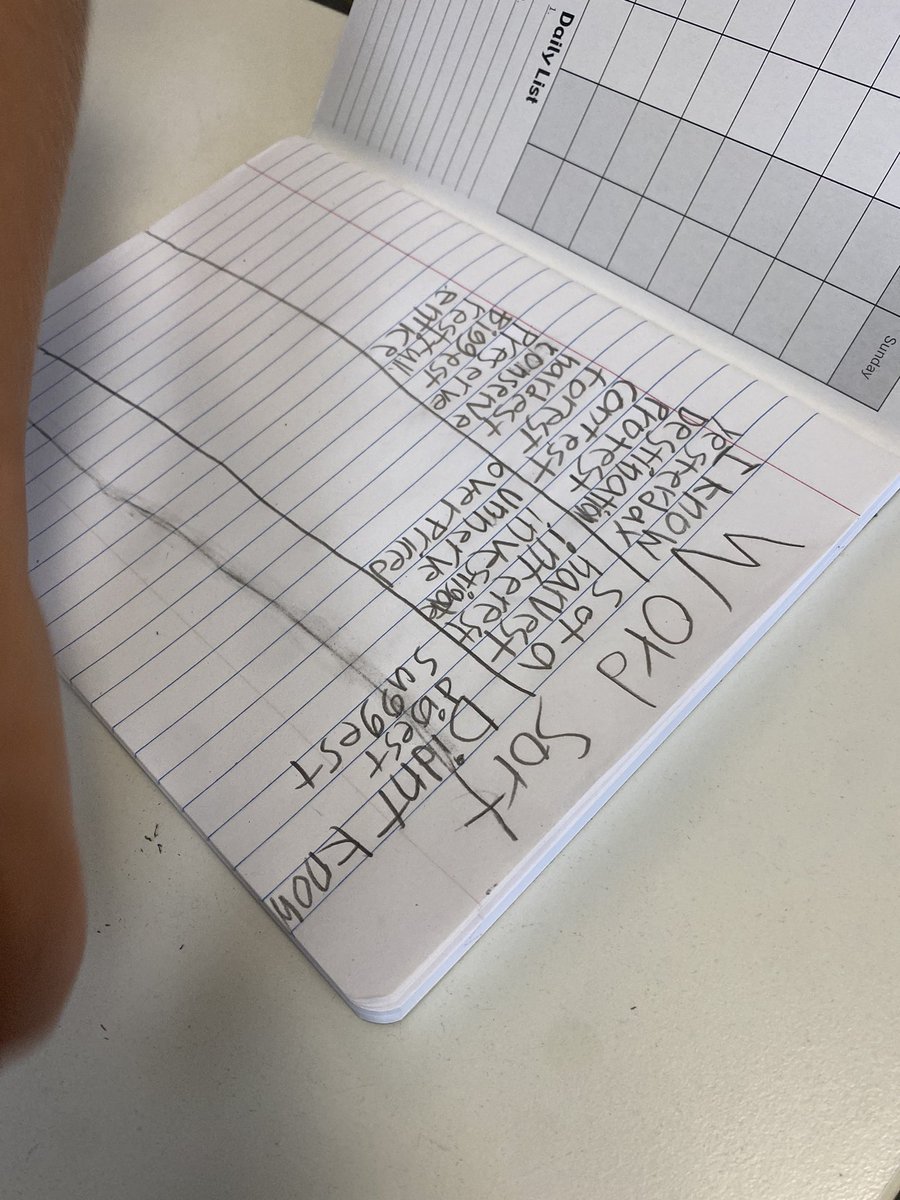 Sunday
Daily List
1.
Word Sort
I know
yesterday
Destination
Protest
contest
forest
hardest
conserve
Preserve
Biggest
restful
entice
sot a
harvest
interest
investigate
unnerve
Didnt know
digest
suggest